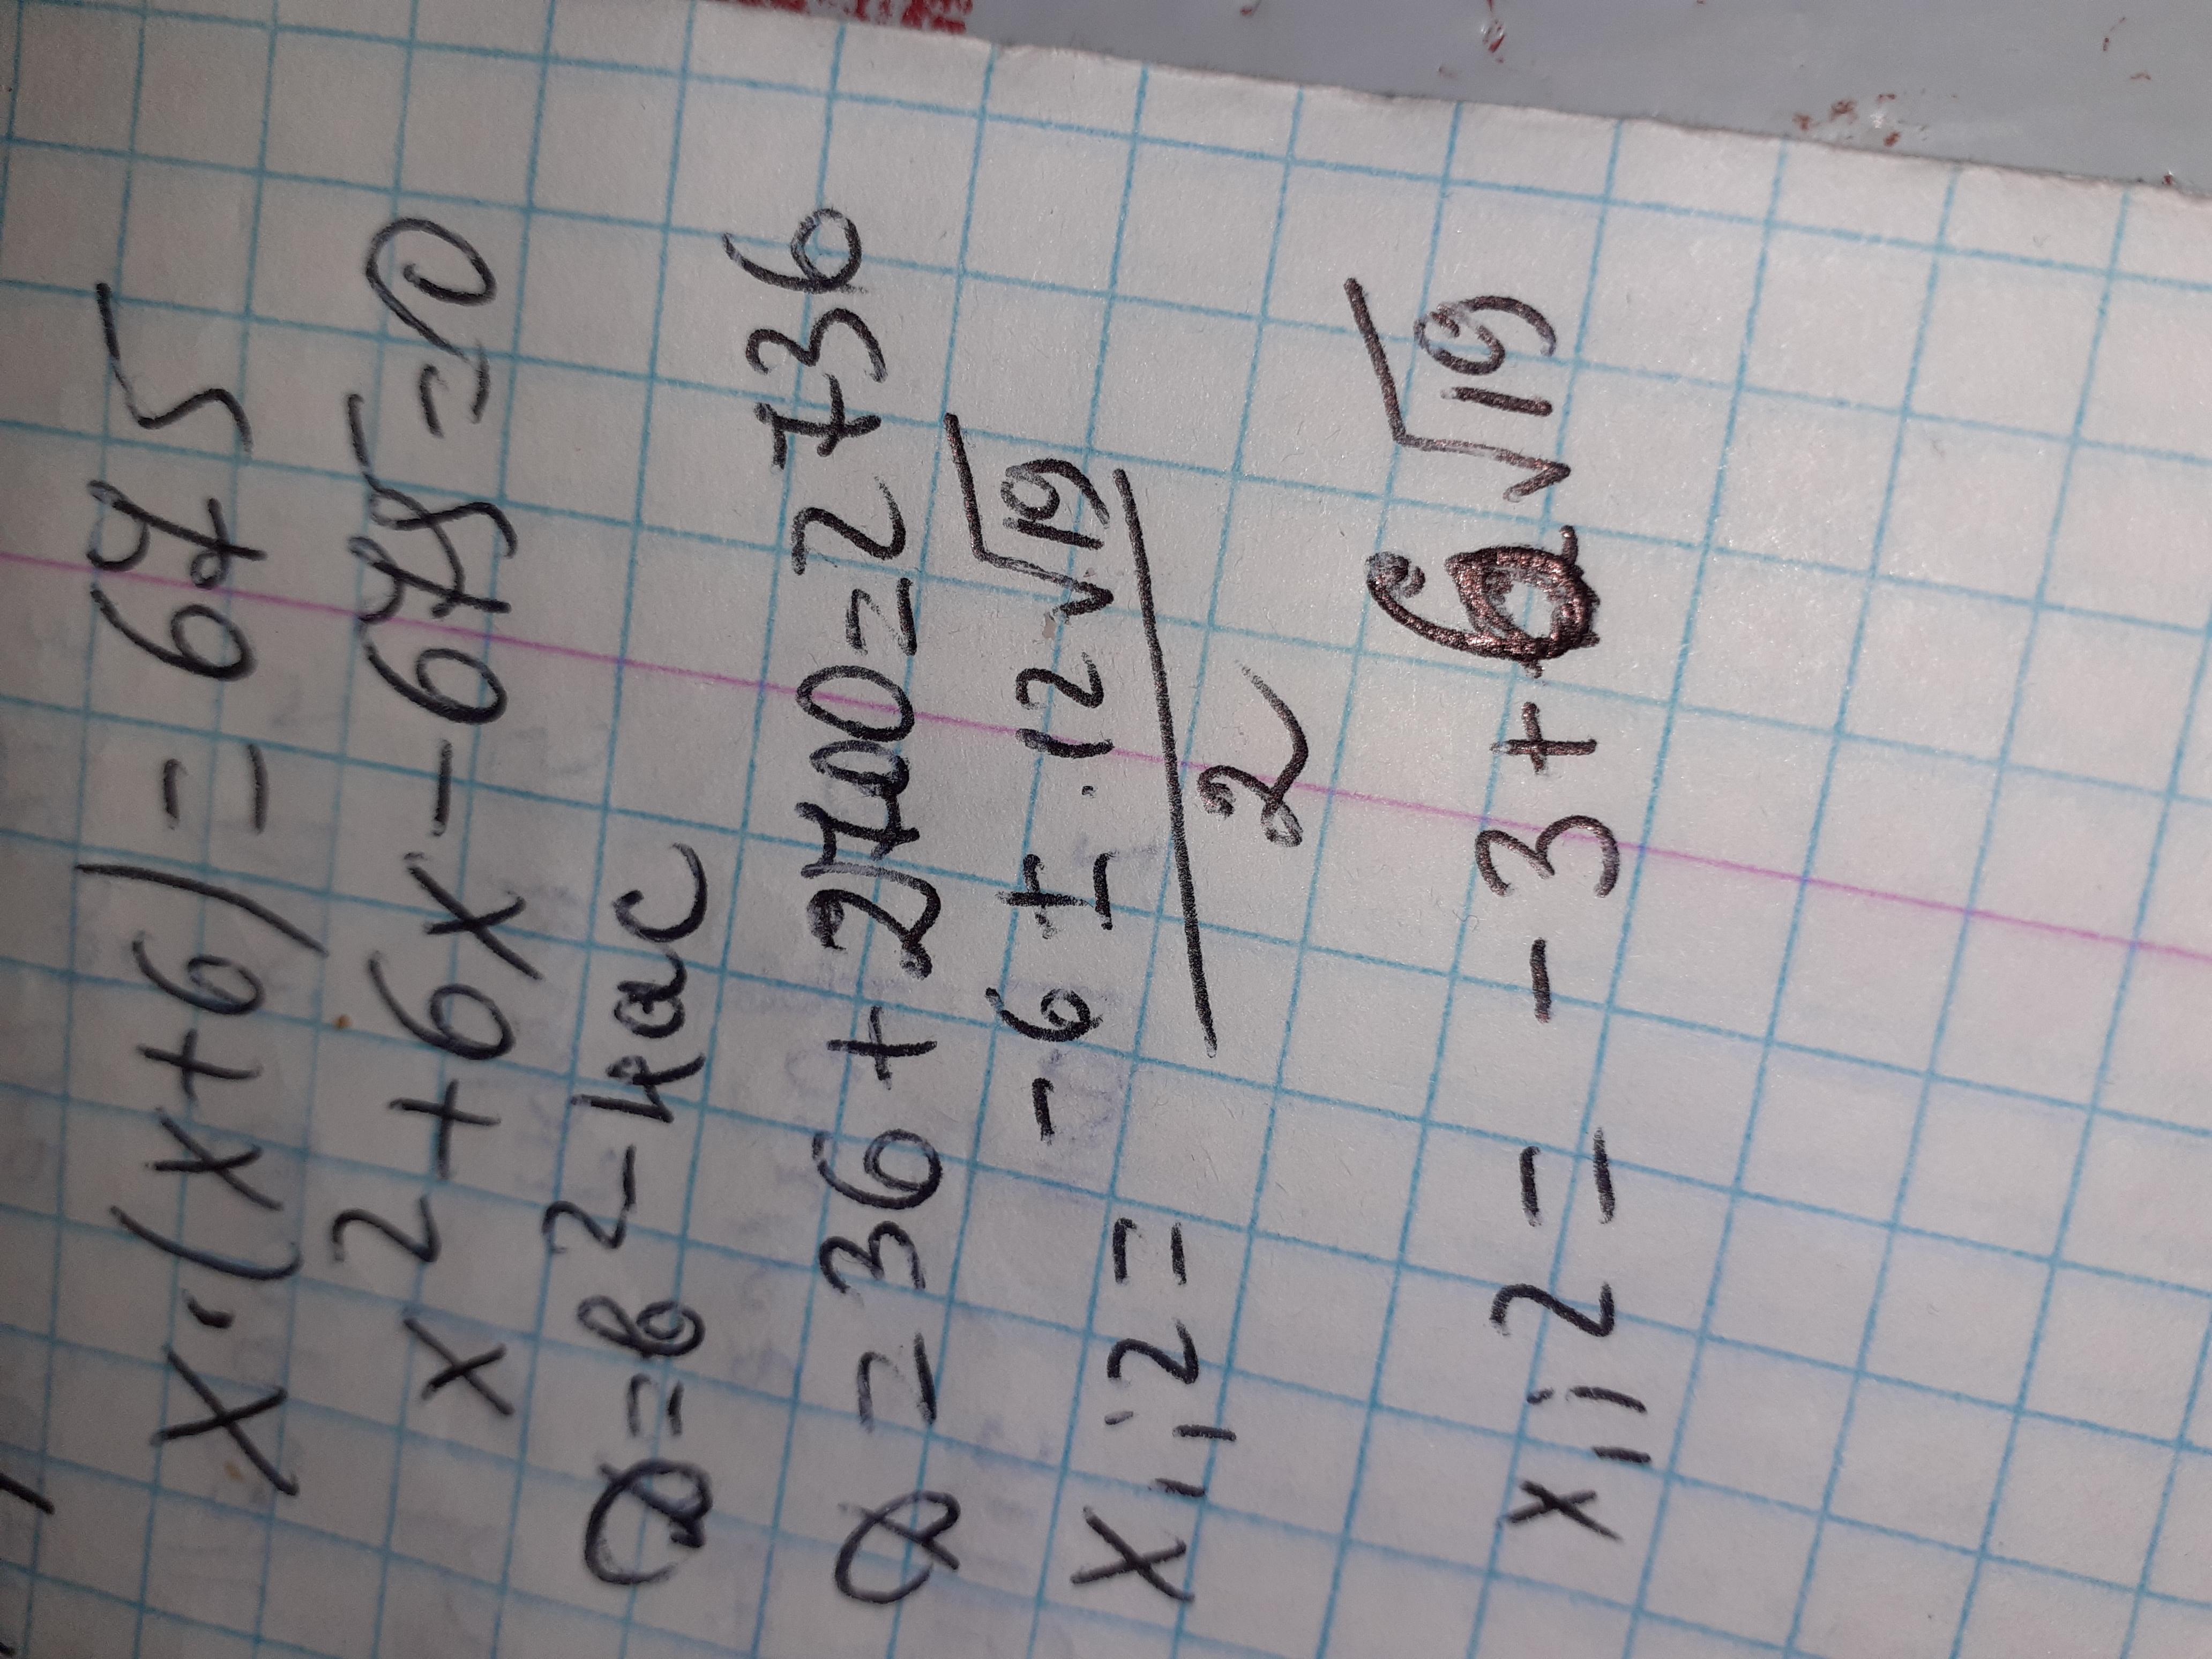 x·(x+6)=675
x²+6x-675=0
D=в²-4ac
D=36+2700=2736
x₁,₂=(-6±12√19)/2
x₁,₂=-3+6√19